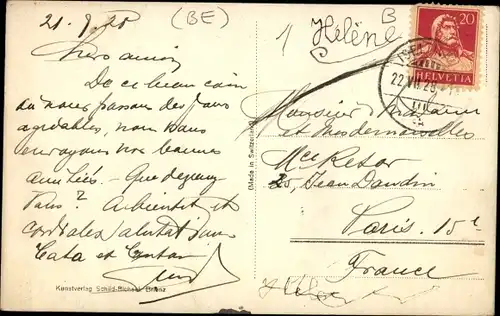 21. 7. 28
(BE)
1
Hélène
B
20
HELVETIA
22. VII. 28
Chers amis
De ce beau coin
où nous passons des jours
agréables, nous vous
envoyons nos bonnes
amitiés. — Que devenez
vous ? A bientôt et
cordiales salutations
Cata et Gaston
Monsieur Madame
et Mesdemoiselles
20, Jean Daudin
Paris. 15e
France
(Made in Switzerland)
Kunstverlag Schild-Bichsel, Brienz